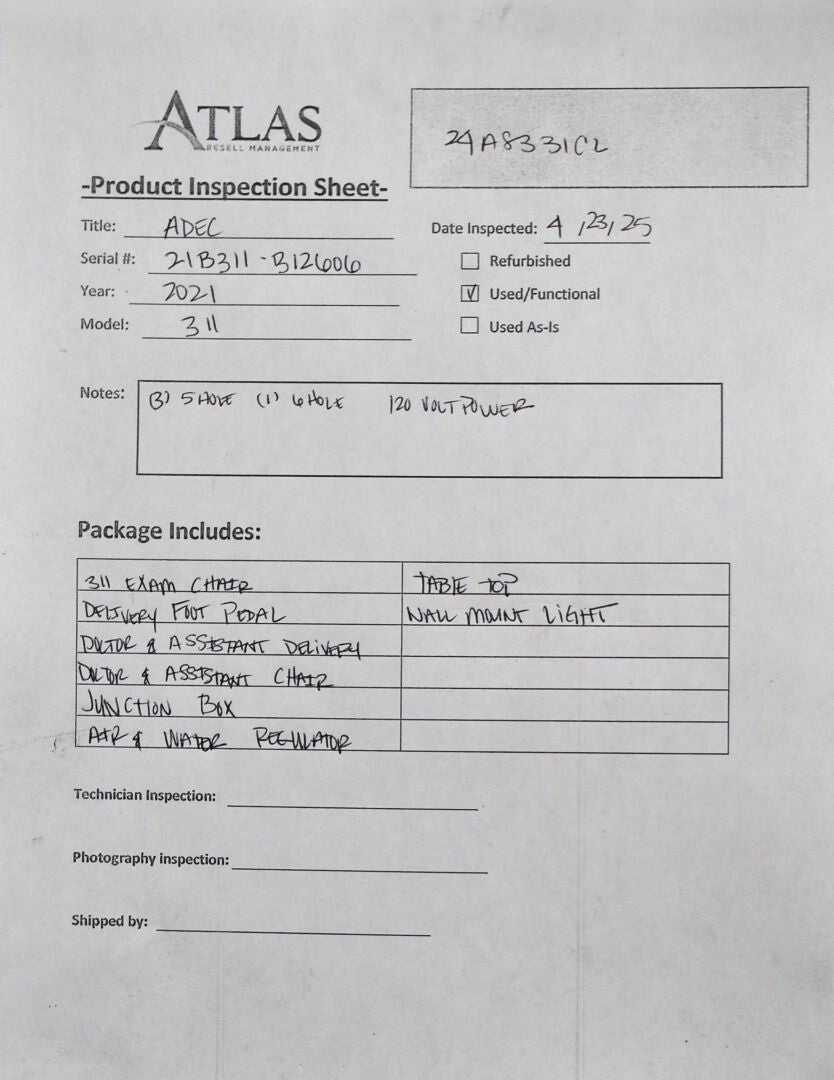 ATLAS
RESELL MANAGEMENT
24A8331CL
-Product Inspection Sheet-
Title: ADEC
Date Inspected: 4/23/25
Serial #: 21B311-B12606
Refurbished
Year: 2021
Used/Functional
Model: 311
Used As-Is
Notes: (3) 5 HOLE (1) 6 HOLE 120 VOLT POWER
Package Includes:
311 EXAM CHAIR TABLE TOP
DELIVERY FOOT PEDAL WALL MOUNT LIGHT
DOCTOR & ASSISTANT DELIVERY
DOCTOR & ASSISTANT CHAIR
JUNCTION BOX
AIR & WATER REGULATOR
Technician Inspection:
Photography inspection:
Shipped by: